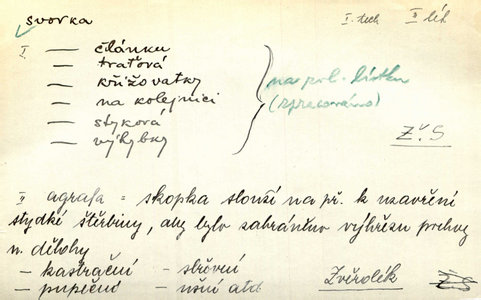 svorka I. tech II léč
I — článku
— traťová
— křižovatky
— na kolejnici
— styková
— výhybky
na pol. lístku
(zpracováno)
Z.S
II agrafa = skopka slouží na př. k uzavření
stydké štěrbiny, aby bylo zabráněno výhřezu pochvy
n. dělohy
— kastrační — střevní
— pupeční — ušní atd
Zvěrolék ZS